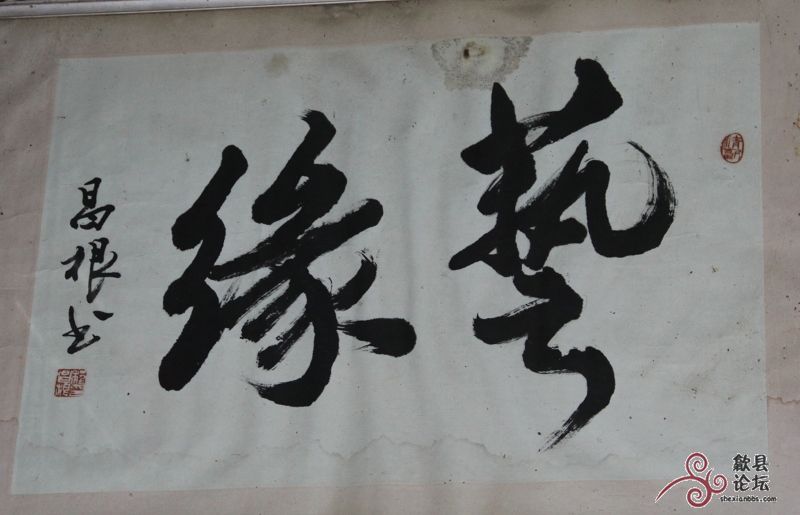 藝緣
昌根书
歙县
论坛
shexianbbs.com